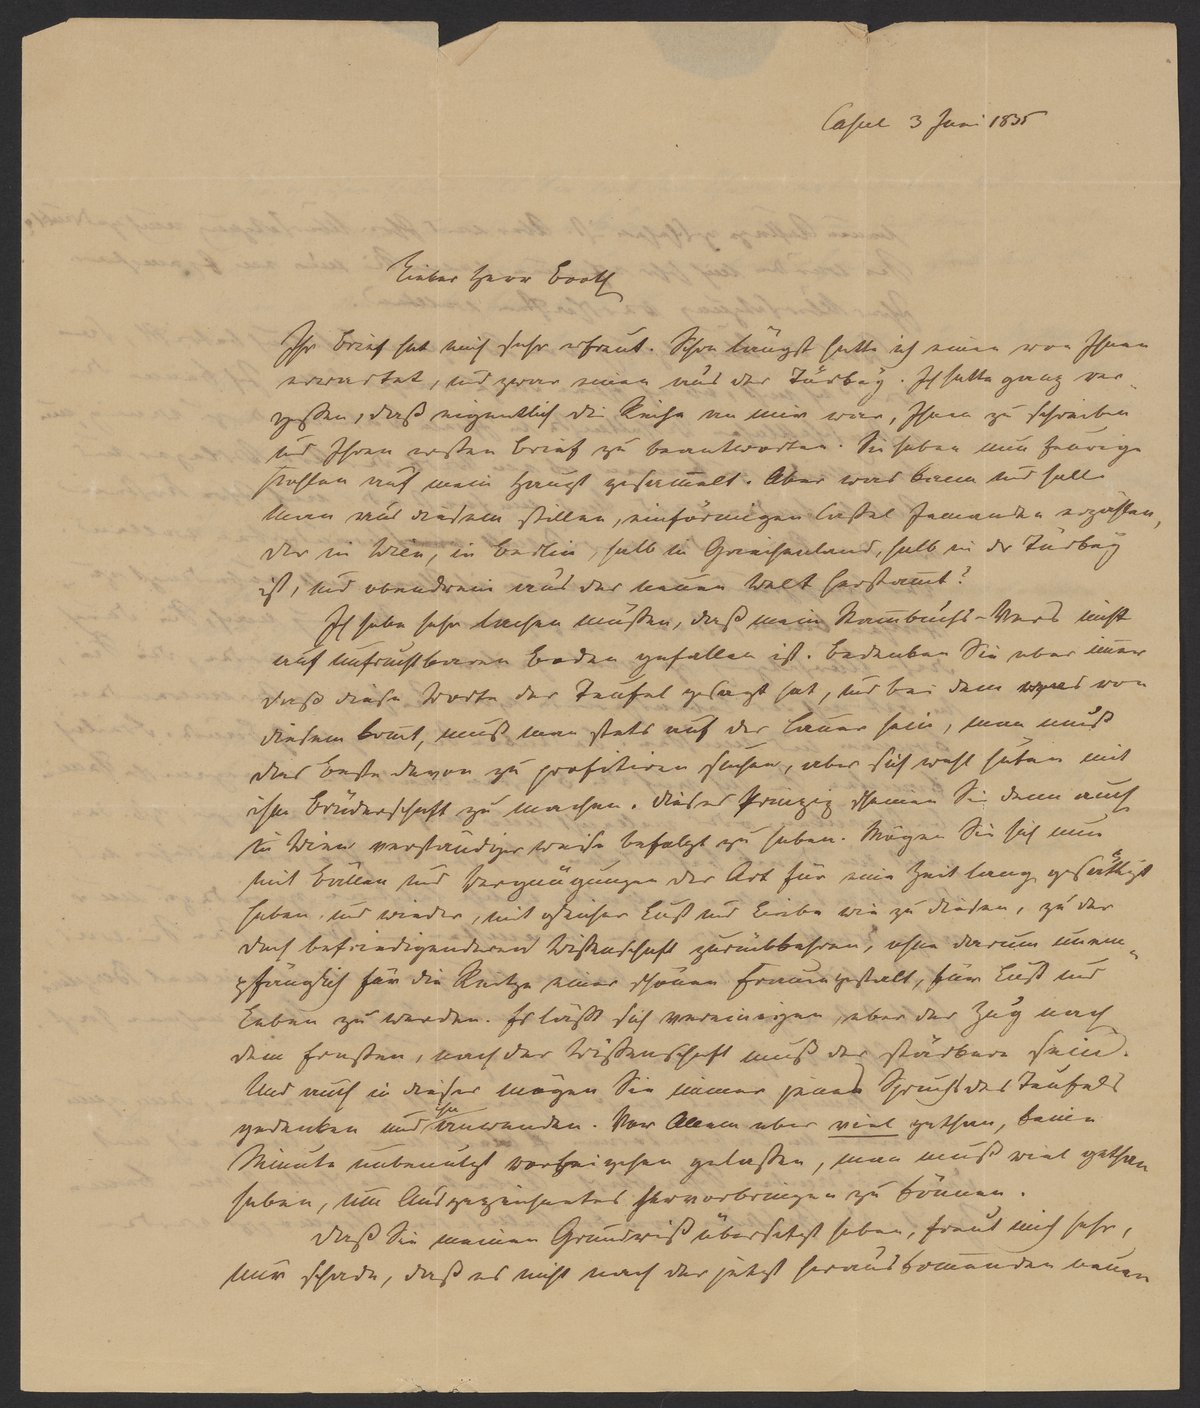 Cassel 3 Juni 1835
Lieber Herr Booth
Ihr Brief hat mich sehr erfreut. Schon längst hatte ich einen von Ihnen
erwartet, und zwar einen aus der Türkey. Ich hatte ganz ver-
gessen, daß eigentlich die Reihe an mir war, Ihnen zu schreiben
und Ihren ersten Brief zu beantworten. Sie haben nun feurige
Kohlen auf mein Haupt gesammelt. Aber was kann und soll
man aus diesem stillen, einförmigen Cassel Jemanden erzählen,
der in Wien, in Berlin, halb in Griechenland, halb in der Türkey
ist, und obendrein aus der neuen Welt herstammt?
Ich habe sehr lachen müssen, daß mein Stammbuchs-Vers nicht
auf unfruchtbaren Boden gefallen ist. Bedenken Sie aber immer
daß diese Worte der Teufel gesagt hat, und bei dem was von
diesem kommt, muß man stets auf der Lauer sein, man muß
das Beste davon zu profitiren suchen, aber sich wohl hüten mit
ihm Brüderschaft zu machen. Dieses Prinzip scheinen Sie denn auch
in Wien verständiger weise befolgt zu haben. Mögen Sie sich nun
mit Bällen und Vergnügungen der Art für eine Zeit lang gesättigt
haben und wieder, mit gleicher Lust und Liebe wie zu diesen, zu der
doch befriedigenderen Wissenschaft zurückkehren, ohne darum unem-
pfänglich für die Reitze einer schönen Frauengestalt, für Lust und
Leben zu werden. Es läßt sich vereinigen, aber der Zug nach
dem Ernsten, nach der Wissenschaft muß der stärkere sein.
Und auch in dieser mögen Sie immer jenes Spruchs des Teufels
gedenken und ihn anwenden. Vor Allem aber viel gethan, keine
Minute unbenutzt vorbeigehen gelassen, man muß viel gethan
haben, um Ausgezeichnetes hervorbringen zu können.
Daß Sie meinen Grundriß übersetzt haben, freut mich sehr,
nur schade, daß es nicht nach der jetzt herauskommenden neuen